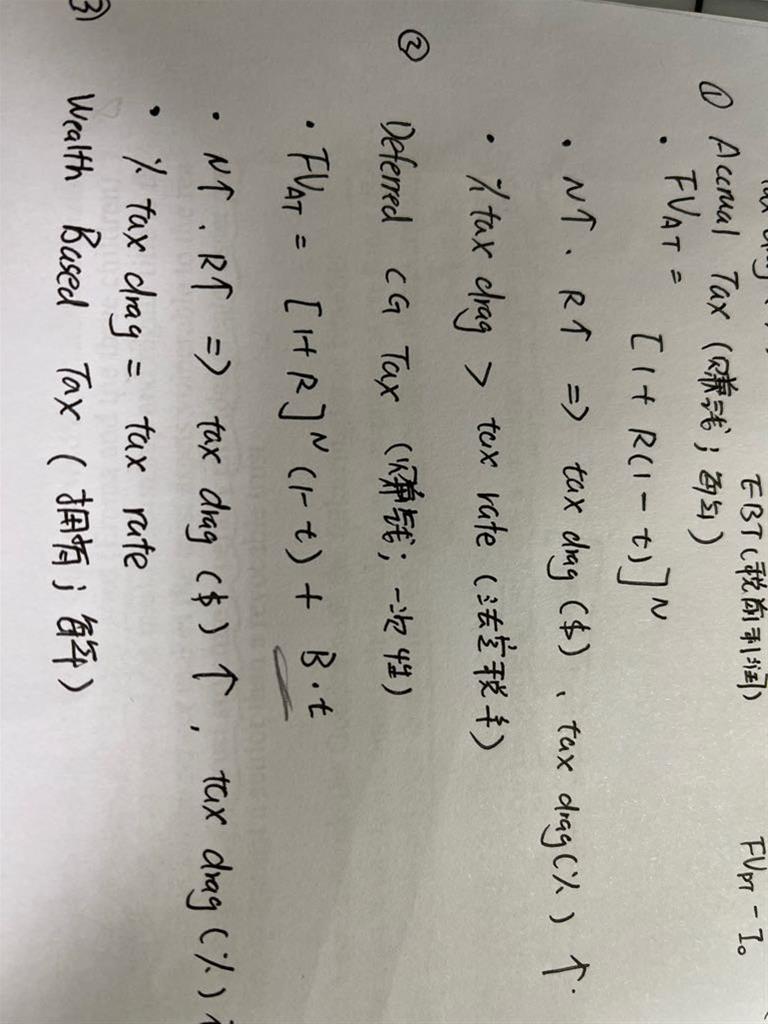 EBT(税前利润) FV_PT - I₀
① Accrual Tax (赚钱; 每年)
• FV_AT = [1 + R(1 - t)]^N
• N↑. R↑ => tax drag ($)、tax drag(%) ↑.
• % tax drag > tax rate (法定税率)
② Deferred CG Tax (赚钱; 一次性)
• FV_AT = [1+R]^N (1-t) + B·t
• N↑. R↑ => tax drag ($) ↑, tax drag(%)
• % tax drag = tax rate
③ Wealth Based Tax (拥有; 每年)